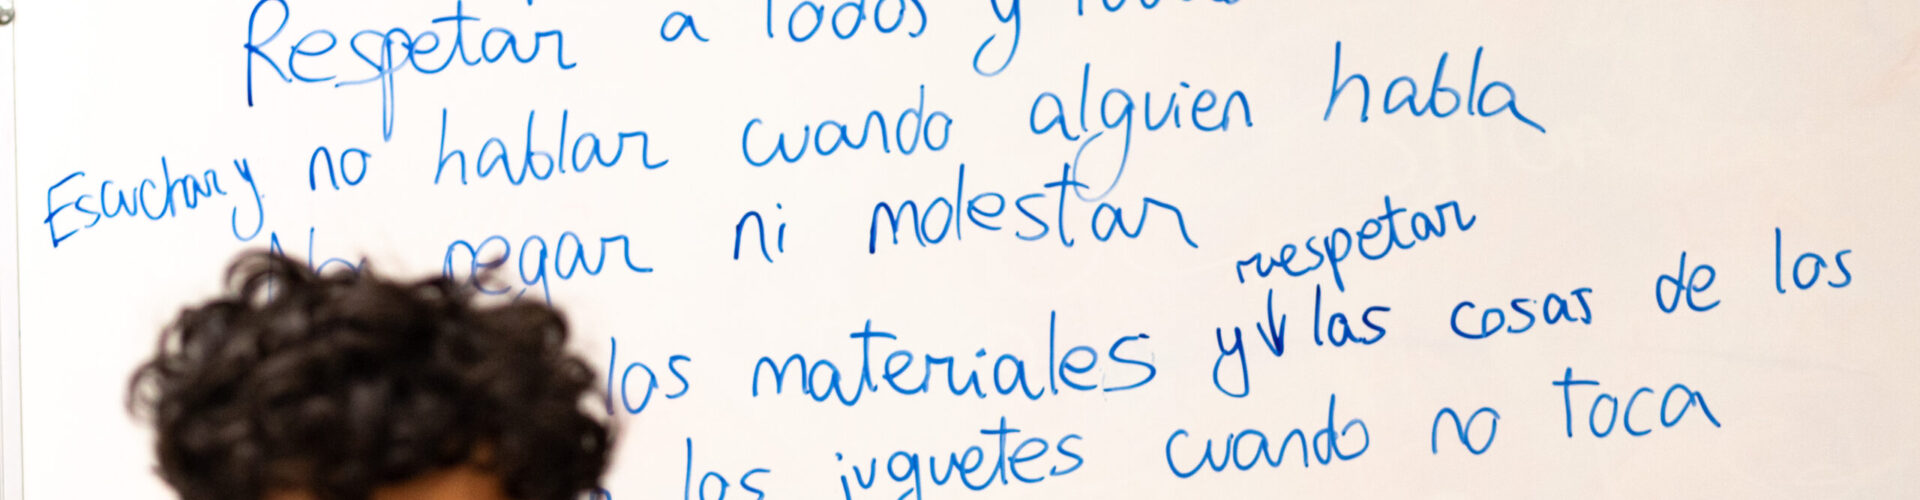 Respetar a todos y
Escuchar y no hablar cuando alguien habla
No pegar ni molestar
respetar
los materiales y las cosas de los
los juguetes cuando no toca